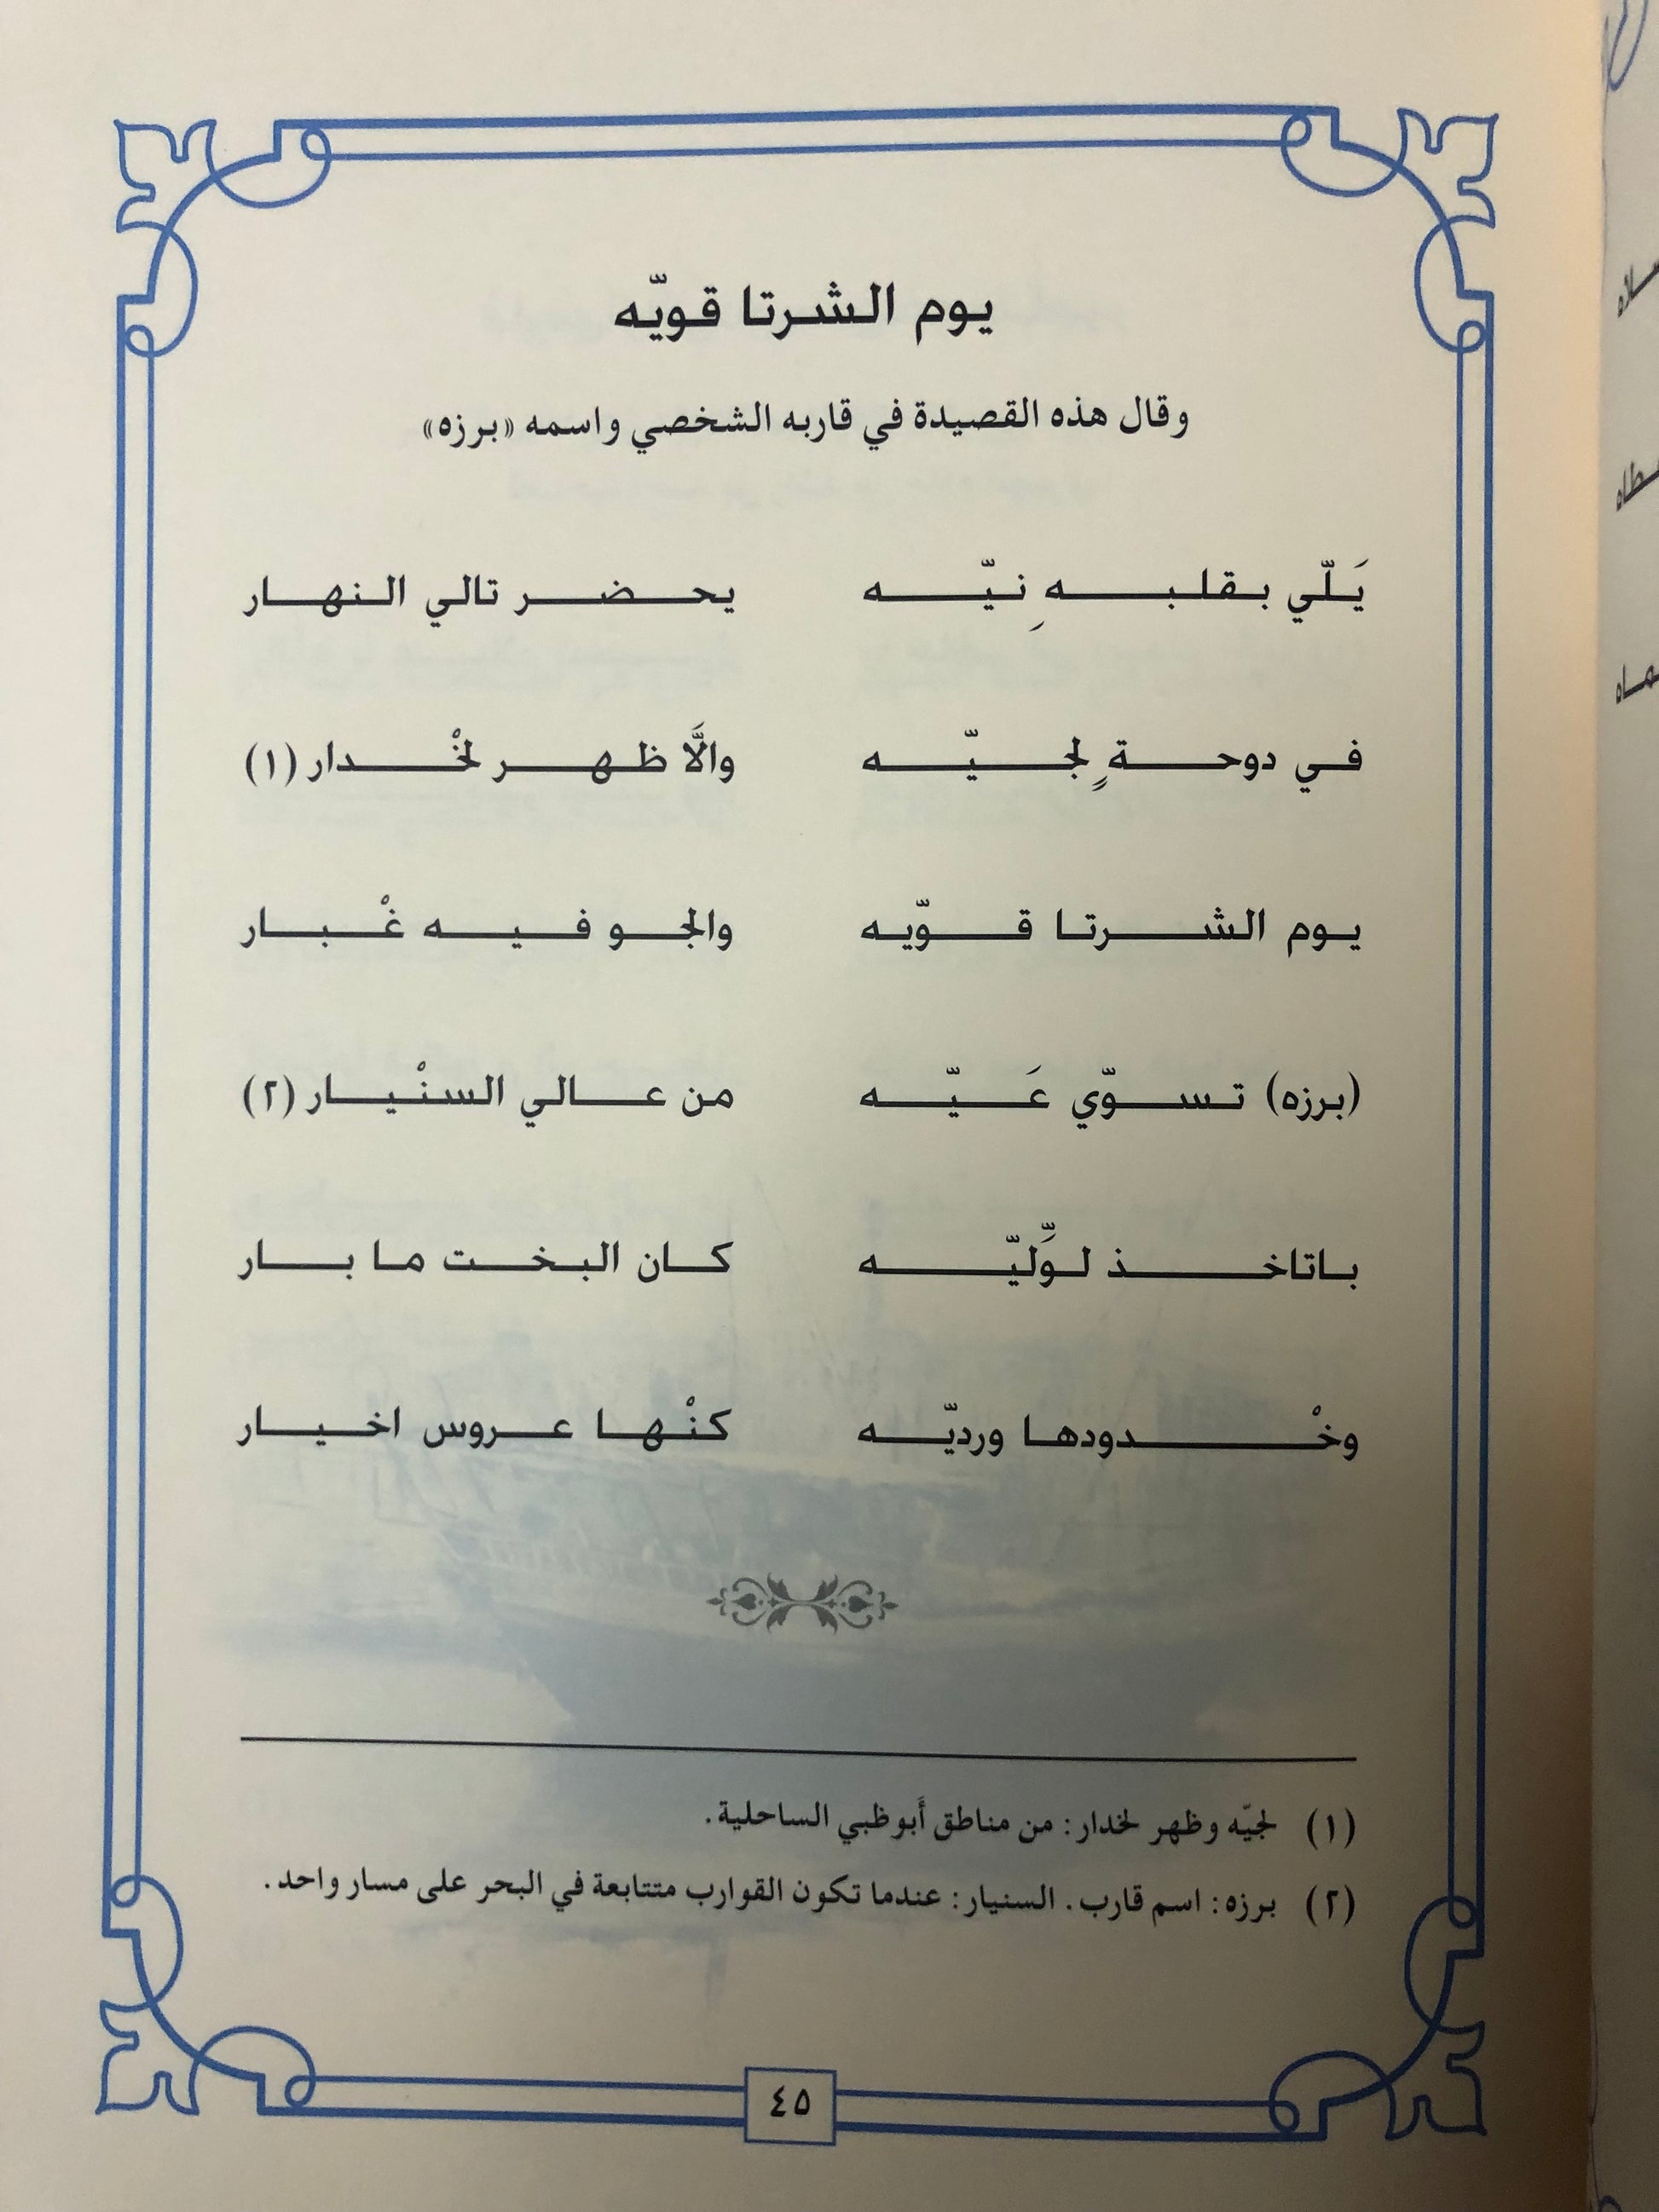 يوم الشرتا قويّه
وقال هذه القصيدة في قاربه الشخصي واسمه «برزه»
يَلّي بقلبه نِيّه يحضر تالي النهار
في دوحةٍ لجيّه والَّا ظهر لخْدار (١)
يوم الشرتا قوّيه والجو فيه غْبار
(برزه) تسوّي عَيّه من عالي السنْيار (٢)
باتاخذ لوّليّه كان البخت ما بار
وخْدودها ورديّه كنْها عروس اخيار
(١) لجيّه وظهر لخدار: من مناطق أَبوظبي الساحلية.
(٢) برزه: اسم قارب. السنيار: عندما تكون القوارب متتابعة في البحر على مسار واحد.
٤٥